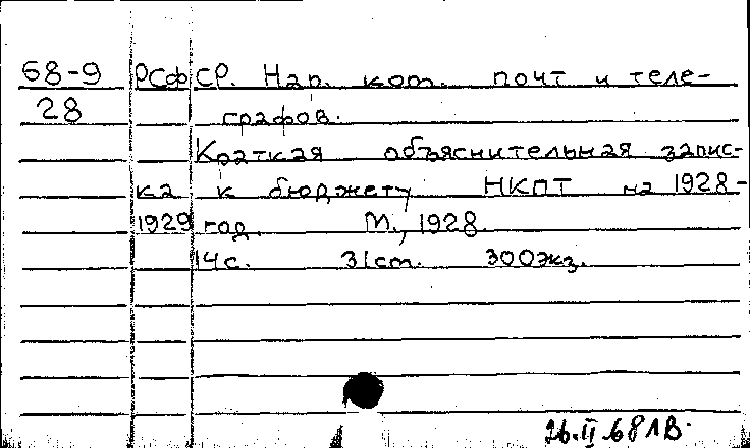 68-9 РСФСР. Нар. ком. почт и теле-
28 графов.
Краткая объяснительная запис-
ка к бюджету НКПТ на 1928-
1929 год. М., 1928.
14с. 31см. 300экз.
26.II.68 ЛВ.